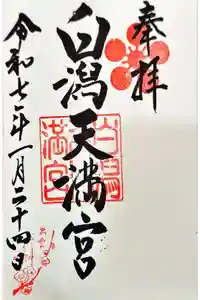 奉拝
白潟天満宮
白潟
満宮
令和七年一月二十四日